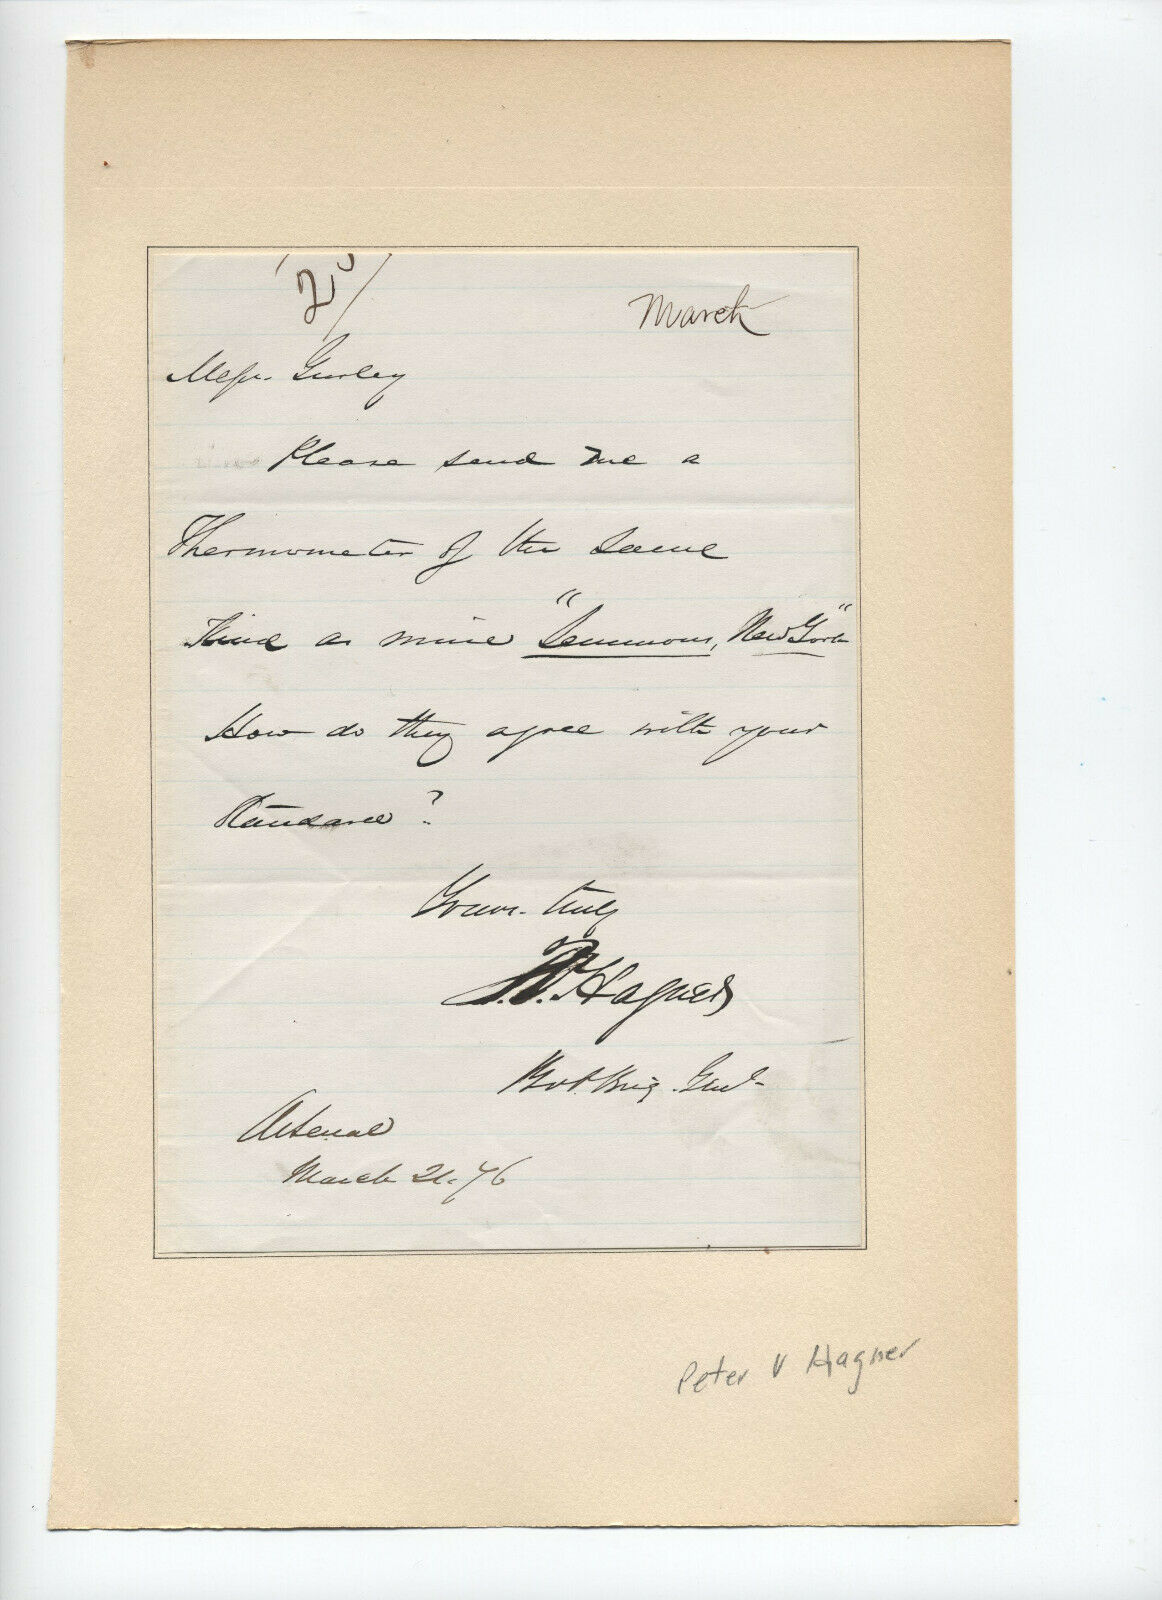 March
Messr. Gurley
Please send me a
Thermometer of the same
Kind as mine "Semmons, New York"
How do they agree with your
Standard?
Yours truly
P.V. Hagner
Bvt. Brig. Genl.
Arsenal
March 21. 76
Peter V Hagner